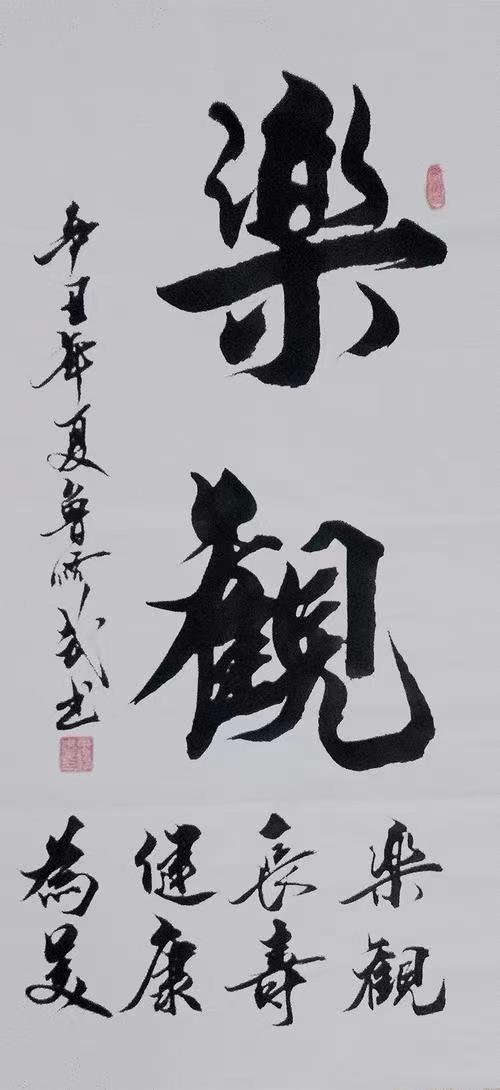 樂觀
辛丑年夏魯修武书
樂觀
長壽
健康
為美